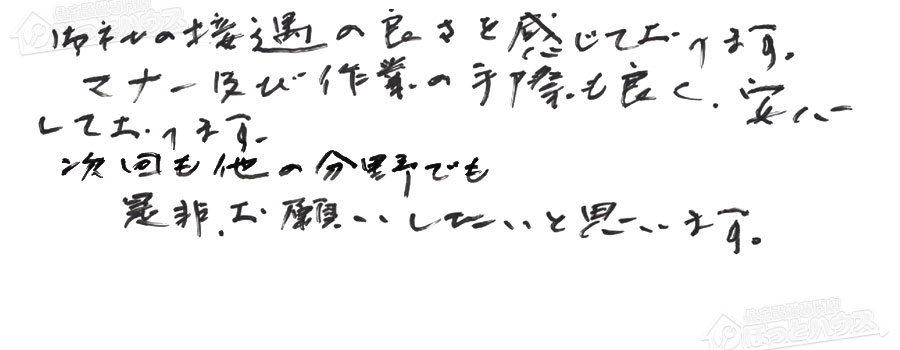 御社の接遇の良さを感じております。
マナー及び作業の手際も良く、安心
しております。
次回も他の分野でも
是非、お願いしたいと思います。
ほっとハウス